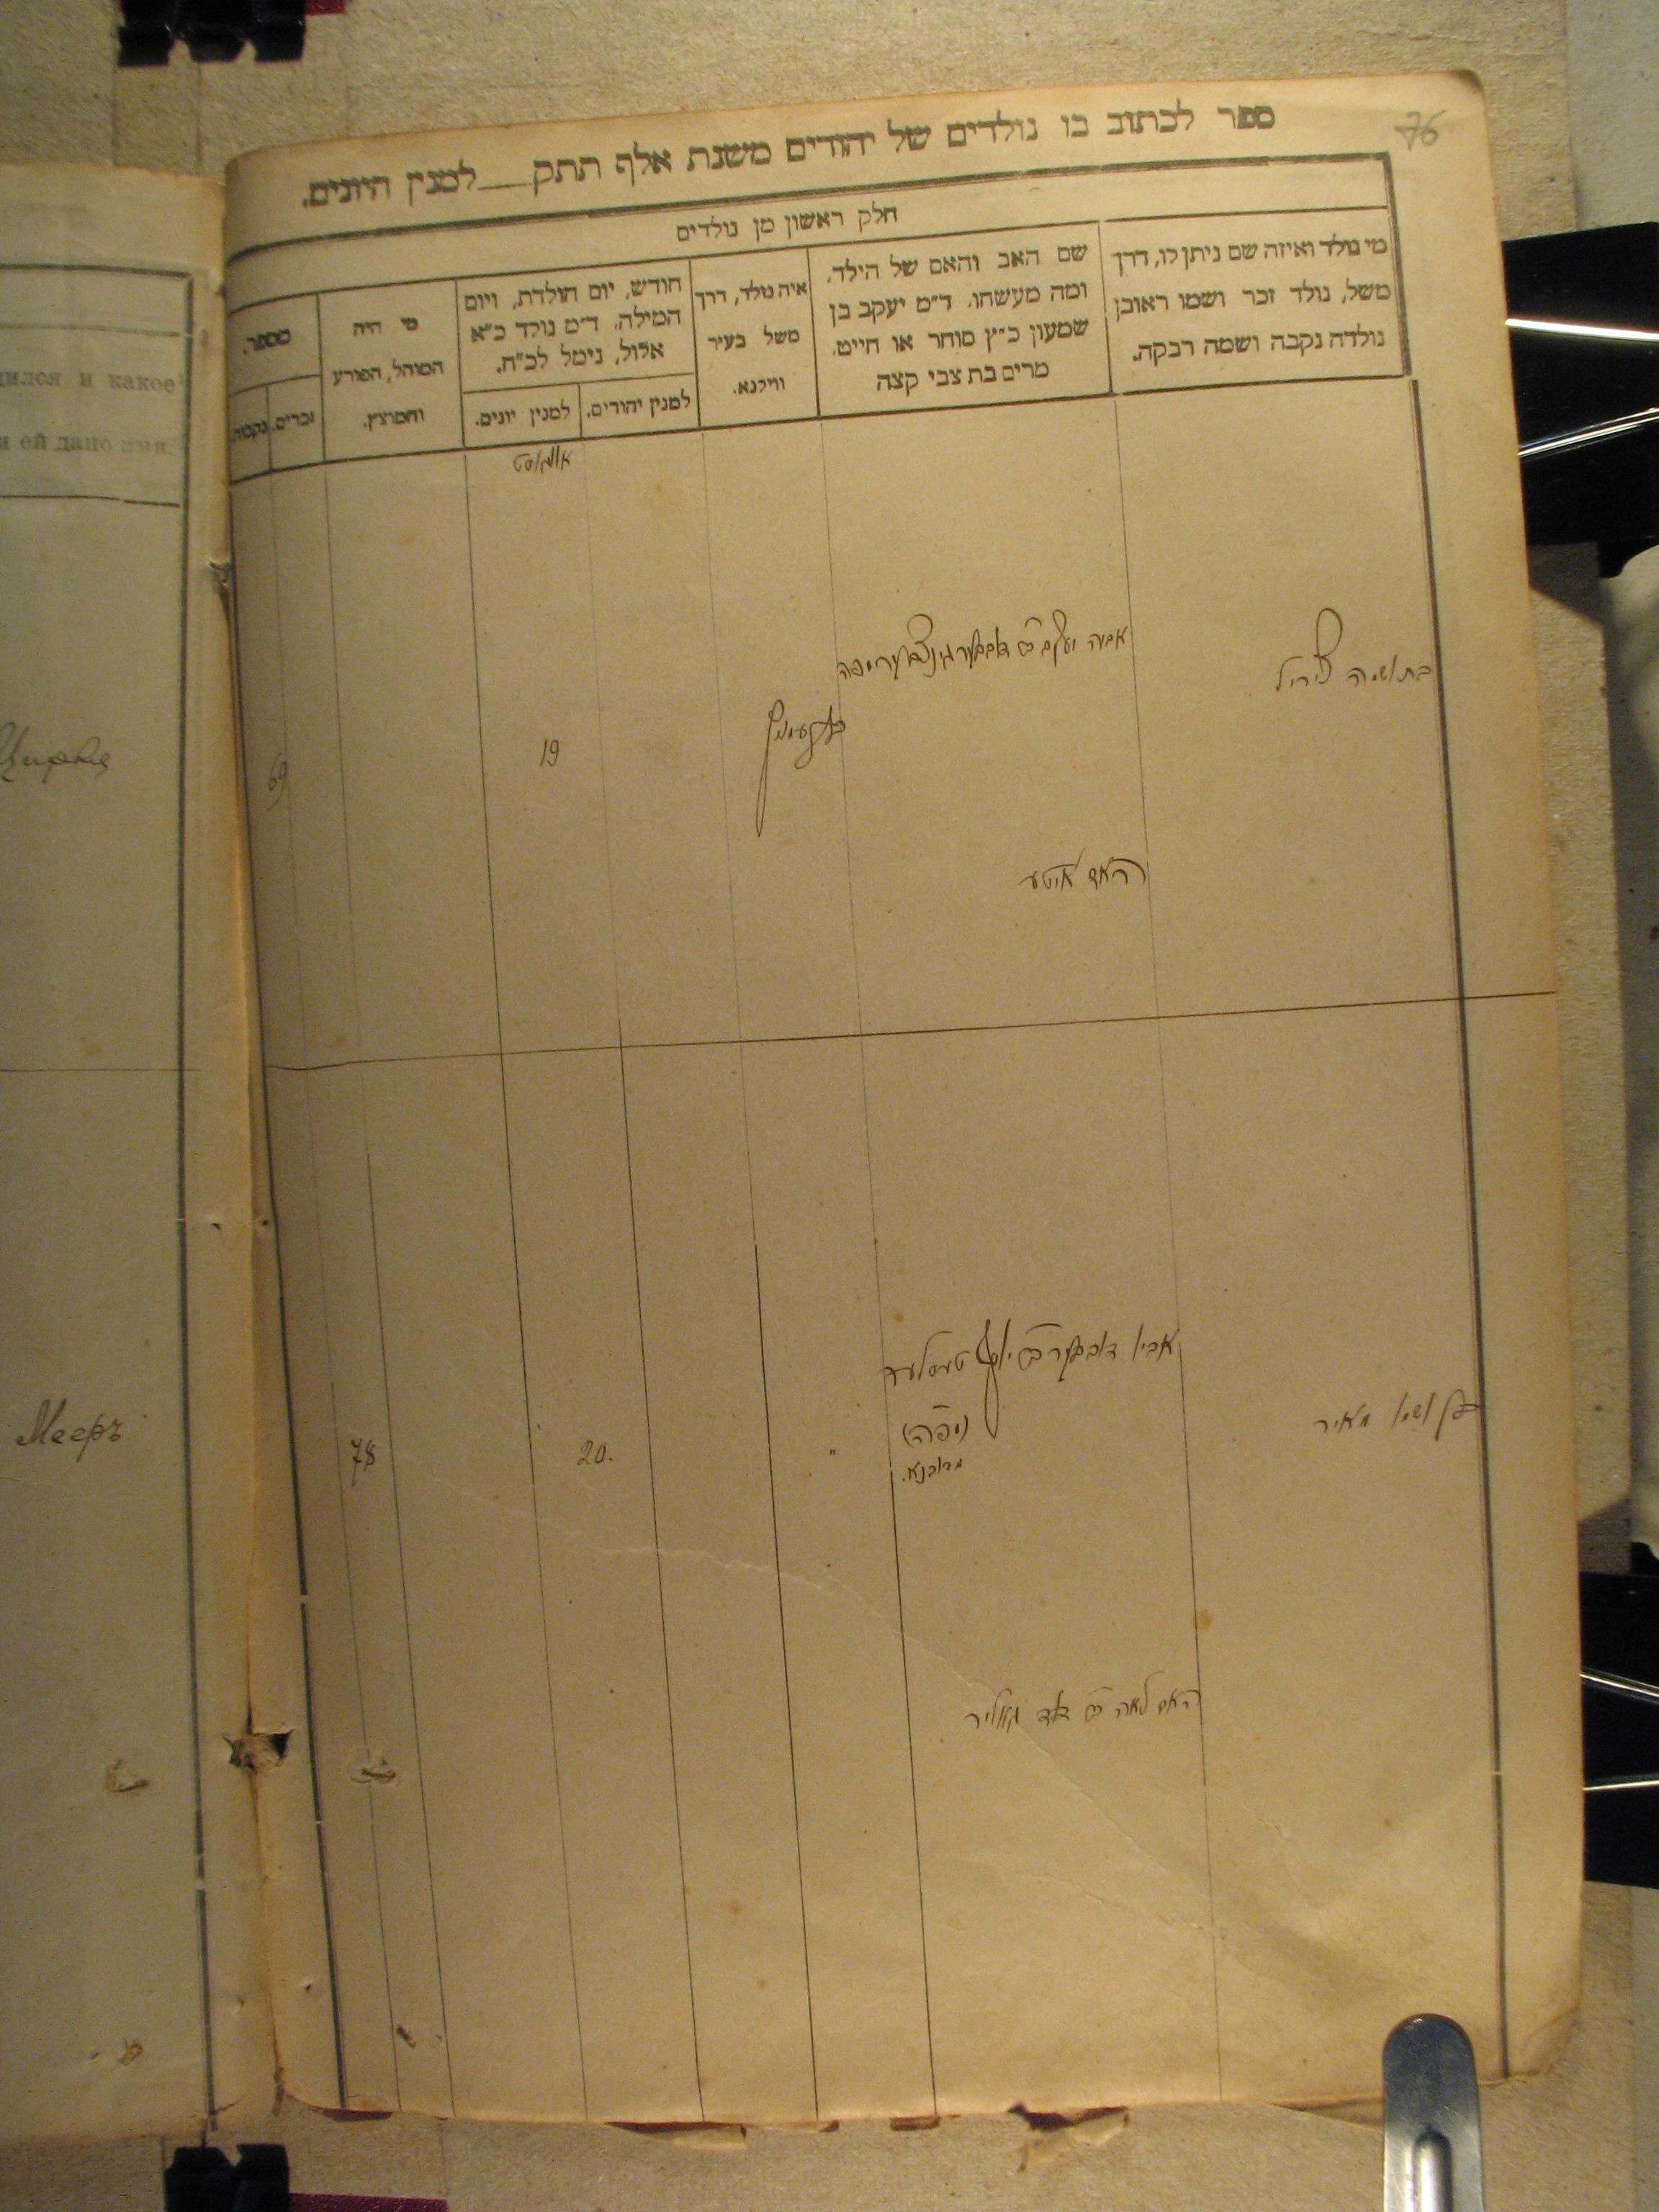 76
ספר לכתוב בו נולדים של יהודים משנת אלף תתק__למנין היונים.
חלק ראשון מן נולדים
מי נולד ואיזה שם ניתן לו, דרך
משל, נולד זכר ושמו ראובן
נולדה נקבה ושמה רבקה.
שם האב והאם של הילד,
ומה מעשהו. ד״מ יעקב בן
שמעון כ״ץ סוחר או חייט.
מרים בת צבי קצה
איה נולד, דרך
משל בעיר
ווילנא.
חודש, יום הולדת, ויום
המילה. ד״מ נולד כ״א
אלול, נימל לכ״ח.
למנין יהודים.
למנין יונים.
מי היה
המוהל, הפורע
והמוצץ.
מספר.
זכרים.
נקבות.
дился и какое
и ей дано имя.
אויגוסט
בת ושמה צירל
אביה יעקב
19
69
האם איטע
Цирля
בן ושמו מאיר
אביו
(יפה)
מדובנא.
"
20.
78
האם לאה
Мееръ